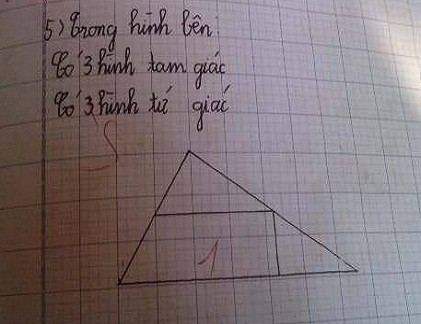 5) Trong hình bên:
Có 3 hình tam giác
Có 3 hình tứ giác
S
1